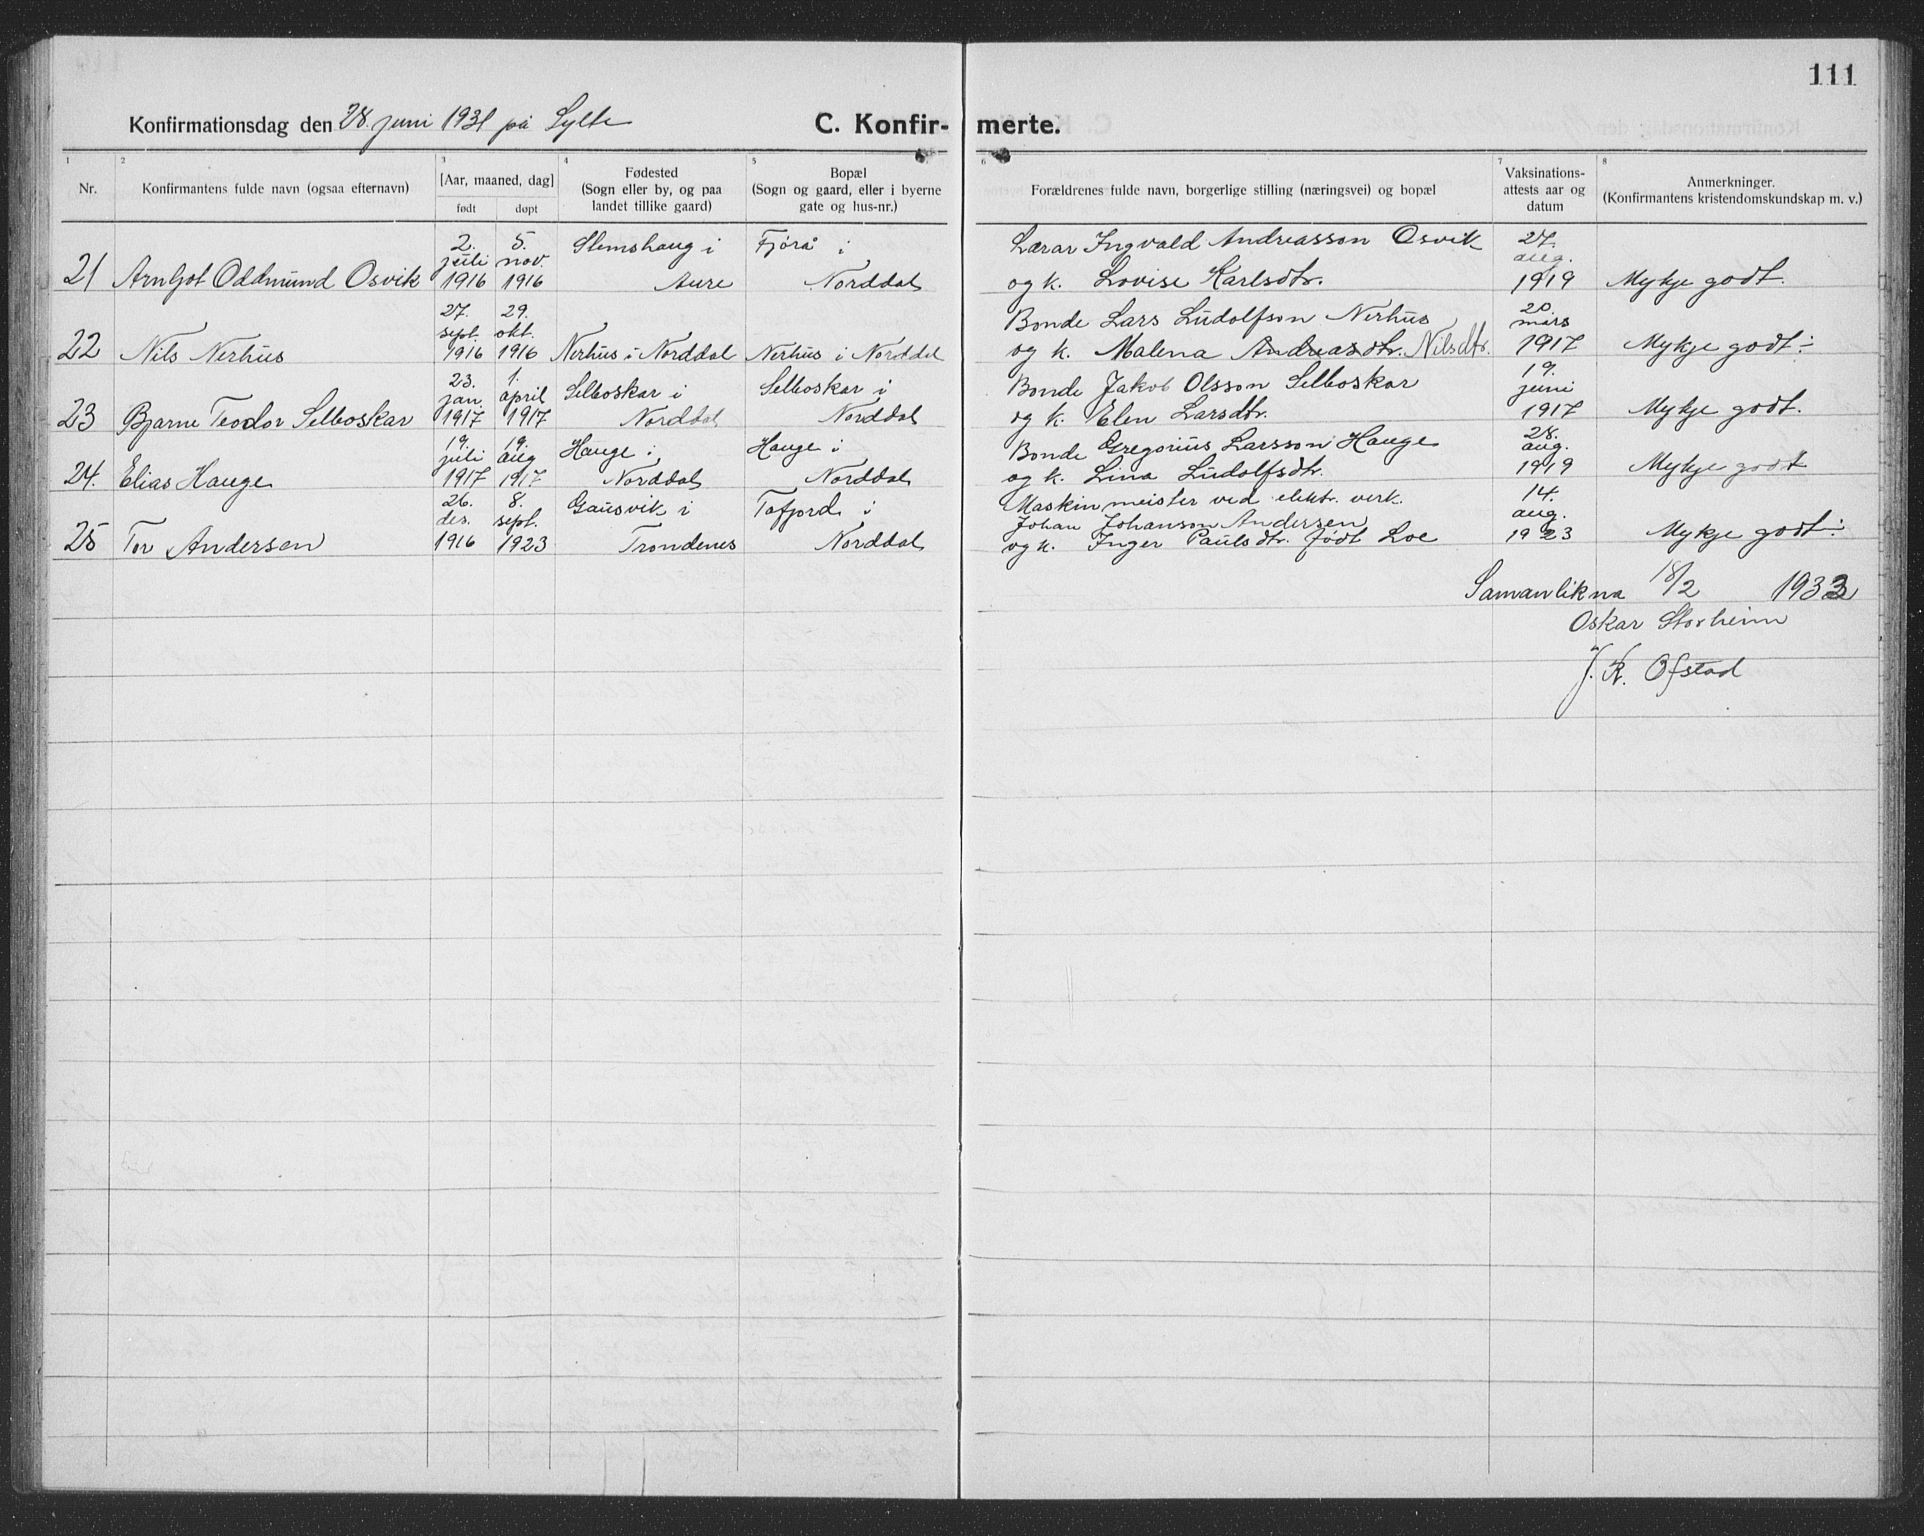 111
Konfirmationsdag den 28. juni 1931 på Sylte
C. Konfir- merte.
1 2 3 4 5 6 7 8
Nr.
Konfirmantens fulde navn (ogsaa efternavn)
[Aar, maaned, dag]
født døpt
Fødested
(Sogn eller by, og paa
landet tillike gaard)
Bopæl
(Sogn og gaard, eller i byerne
gate og hus-nr.)
Forældrenes fulde navn, borgerlige stilling (næringsvei) og bopæl
Vaksinations-
attests aar og
datum
Anmerkninger.
(Konfirmantens kristendomskundskap m. v.)
2. 5. Stemshaug i Fjørå i Lærar Ingvald Andreasson Osvik 27.
juli nov. aug.
21 Arnljot Oddmund Osvik 1916 1916 Aure Norddal og k. Lovise Karlsdtr. 1919 Mykje godt.
27. 29. Bonde Lars Ludolfson Nerhus 20.
sept. okt. mars
22 Nils Nerhus 1916 1916 Nerhus i Norddal Nerhus i Norddal og k. Malena Andreasdtr. Nilsdtr. 1917 Mykje godt ÷
23. 1. Selboskar i Selboskar i Bonde Jakob Olsson Selboskar 19.
jan. april juni
23 Bjarne Teodor Selboskar 1917 1917 Norddal Norddal og k. Elen Larsdtr. 1917 Mykje godt.
19. 19. Hauge i Hauge i Bonde Gregorius Larsson Hauge 28.
juli aug aug.
24. Elias Hauge 1917 1917 Norddal Norddal og k. Lina Ludolfsdtr. 1919 Mykje godt
26. 8. Gausvik i Tafjord i Maskinmeister ved elektr. verk. 14.
des. sept. Johan Johanson Andersen aug.
25 Tor Andersen 1916 1923 Trondenes Norddal og k. Inger Paulsdtr. født Loe 1923 Mykje godt ÷
Samanlikna 18/2 1933
Oskar Storheim
J. K. Ofstad